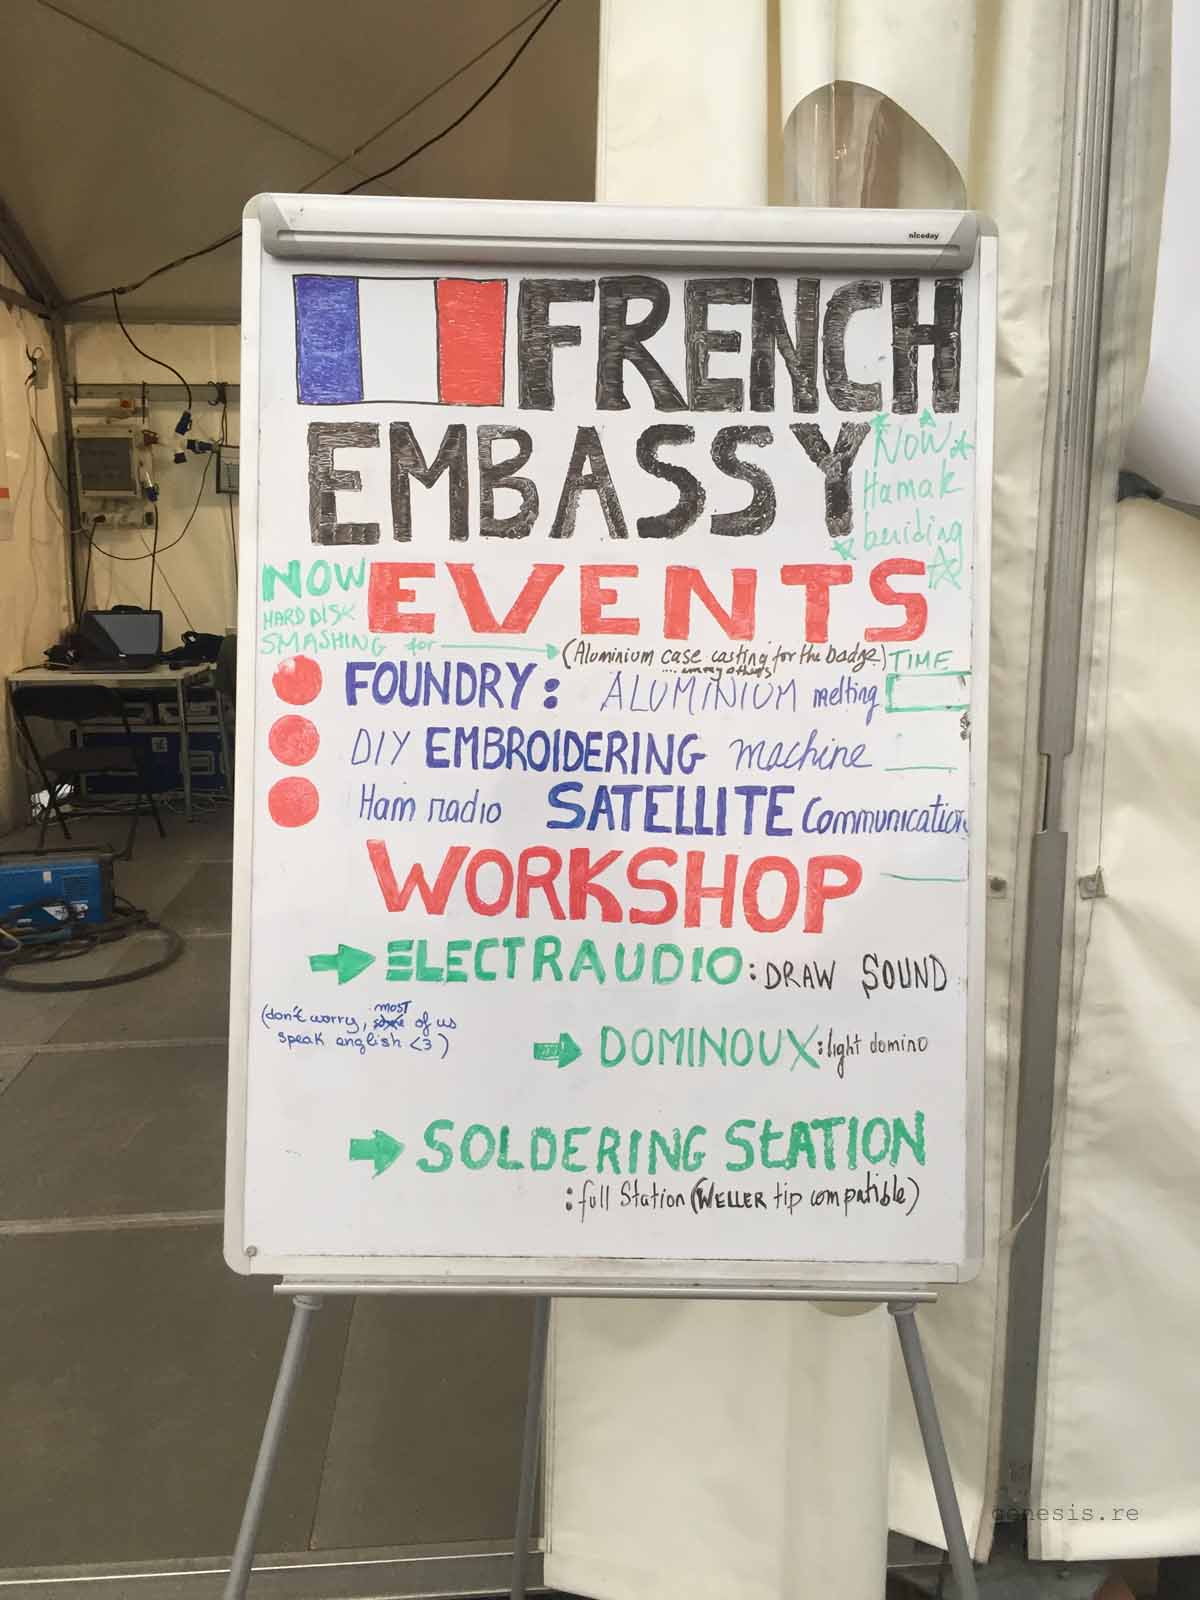 niceday
FRENCH
EMBASSY
NOW
Hamak
beriding
NOW
HARD DISK
SMASHING for
EVENTS
(Aluminium case casting for the badge)
TIME
FOUNDRY: ALUMINIUM melting
DIY EMBROIDERING machine
Ham radio SATELLITE Communication
WORKSHOP
ELECTRAUDIO: DRAW SOUND
(don't worry, most of us
speak english <3)
DOMINOUX: light domino
SOLDERING StATION
: full Station (WELLER tip compatible)
genesis.re